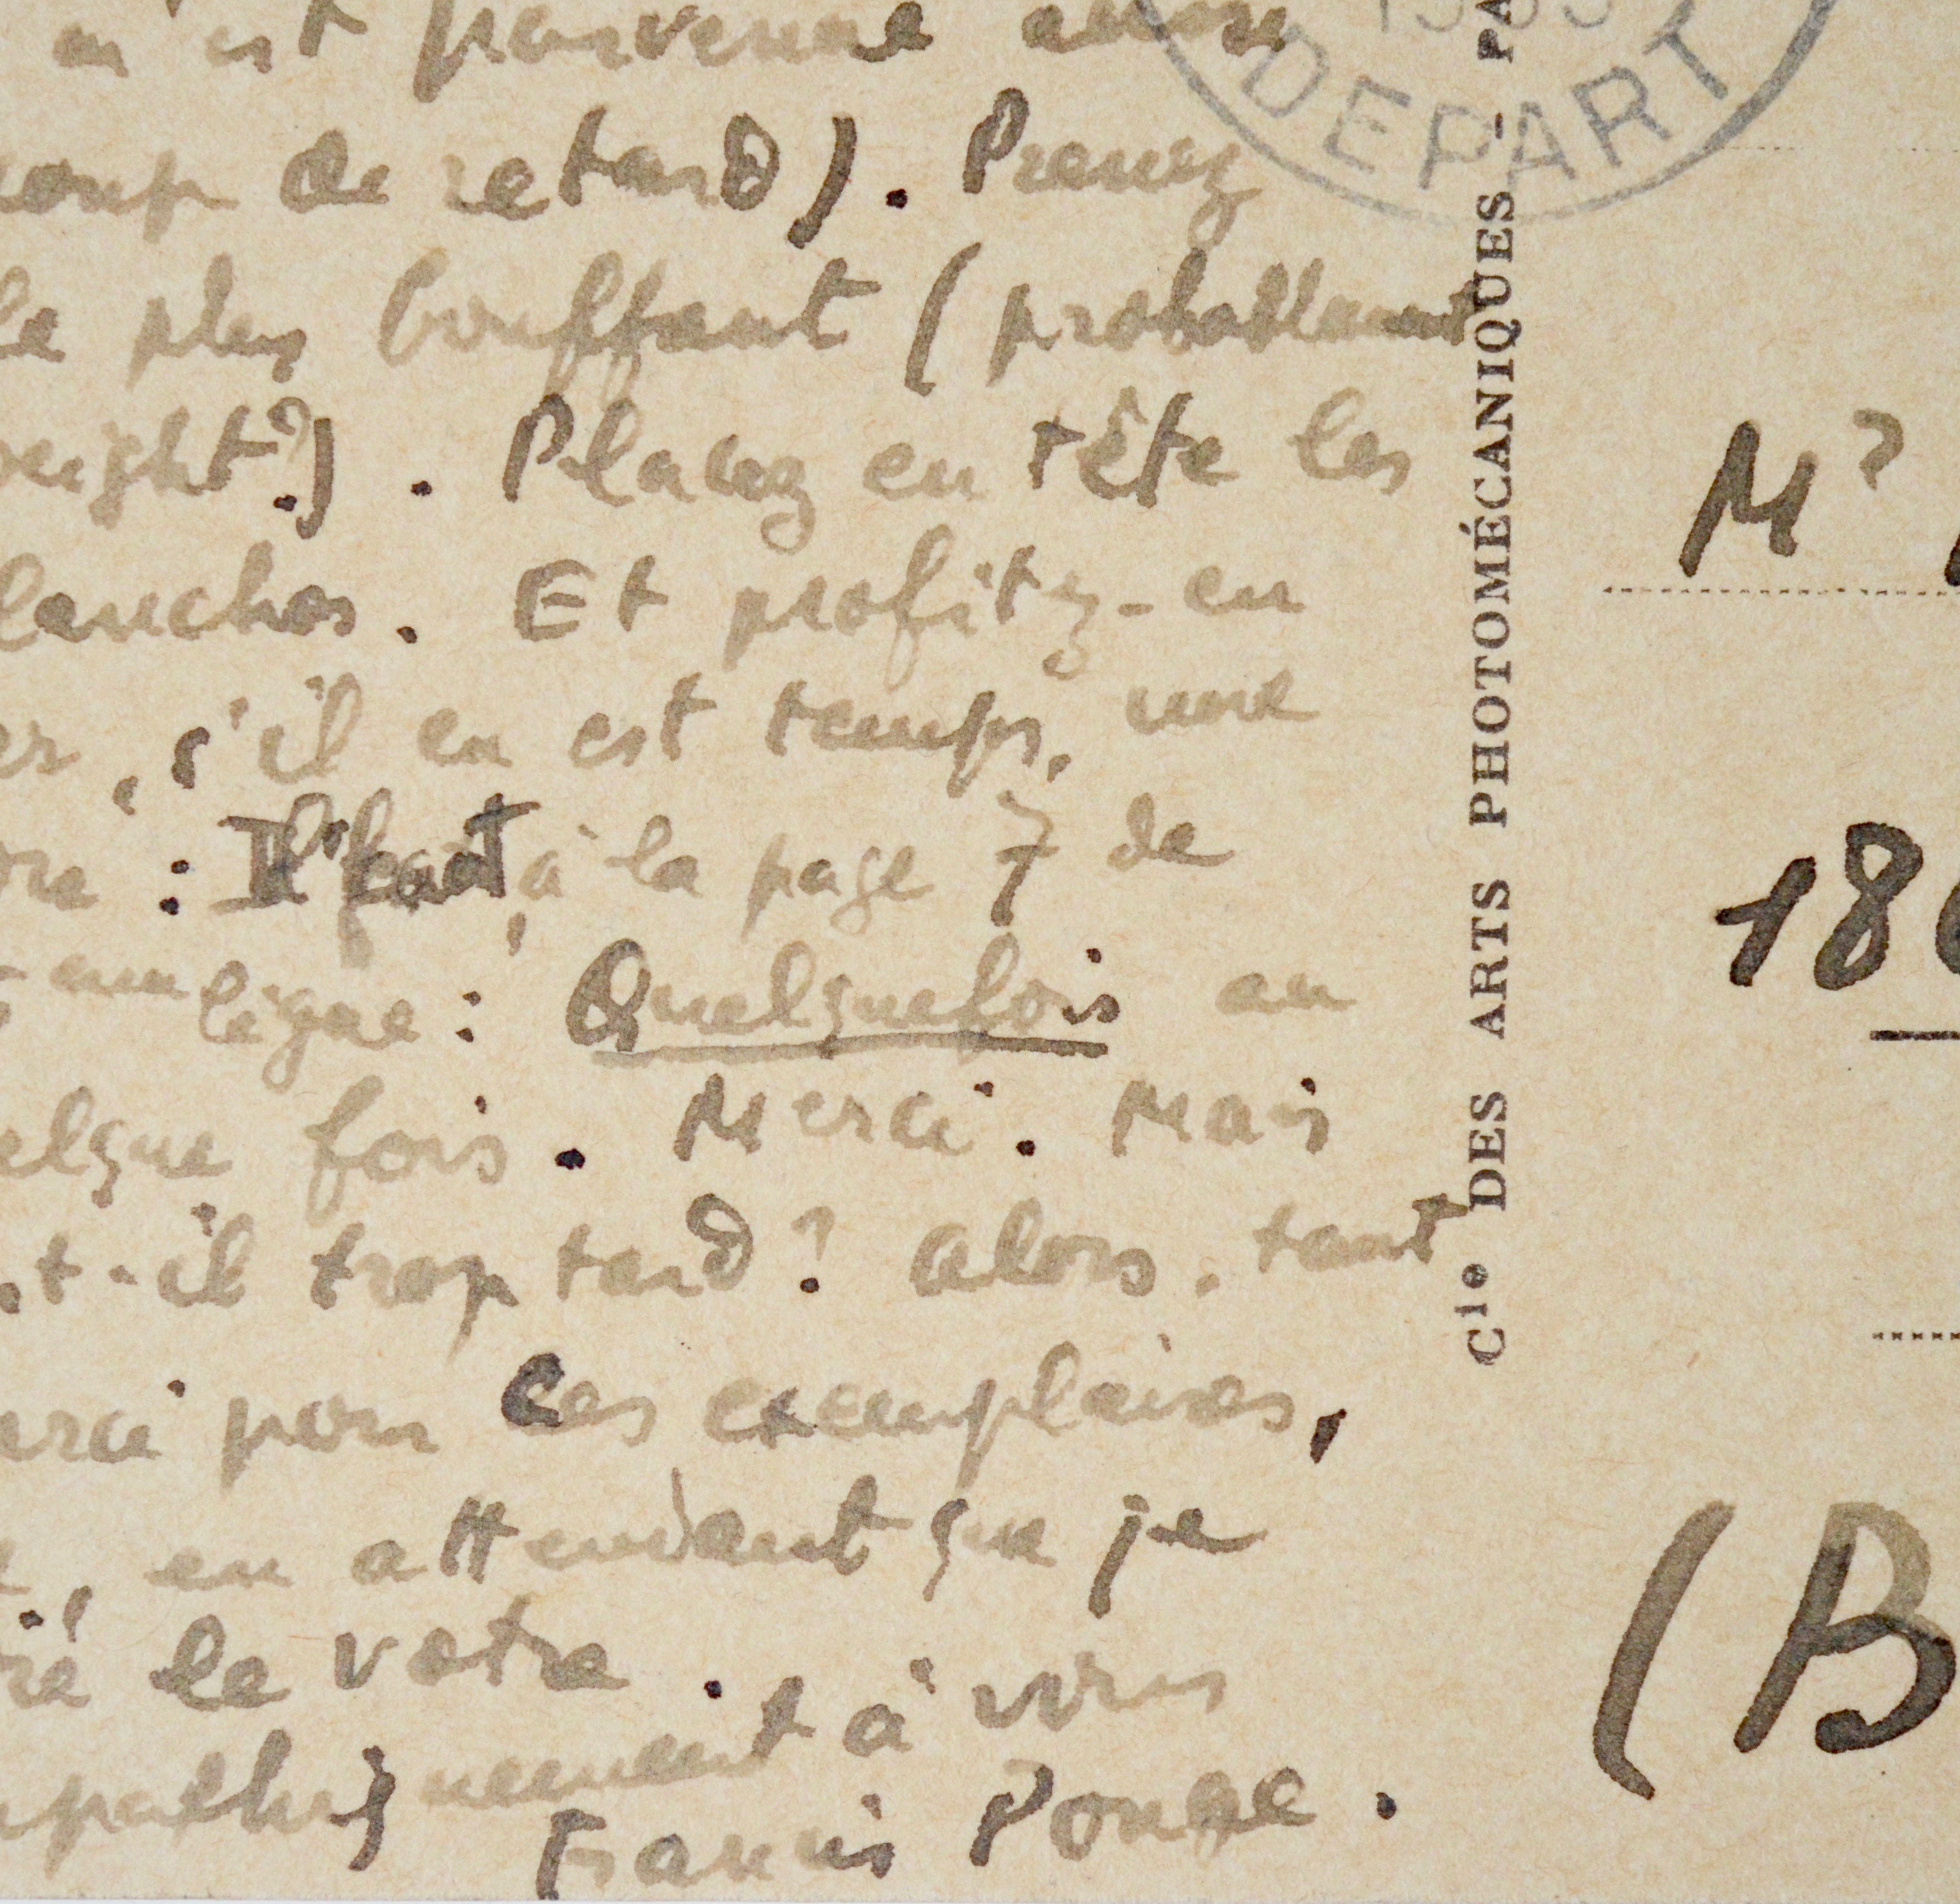 m'est parvenue avec
coup de retard). Prenez
le plus bouffant (probablement
weight?). Placez en tête les
lanches. Et profitez-en
er, s'il en est temps, une
ore : Il faut, à la page 7 de
eme ligne : Quelquefois en
elque fois. Merci. Mais
t-il trop tard ? alors, tant
erci pour ces exemplaires,
e, en attendant que je
ré le votre.
mpathiquement à vous
Francis Ponge.
DEPART
Cie DES ARTS PHOTOMÉCANIQUES – PA
Mr
18
(B